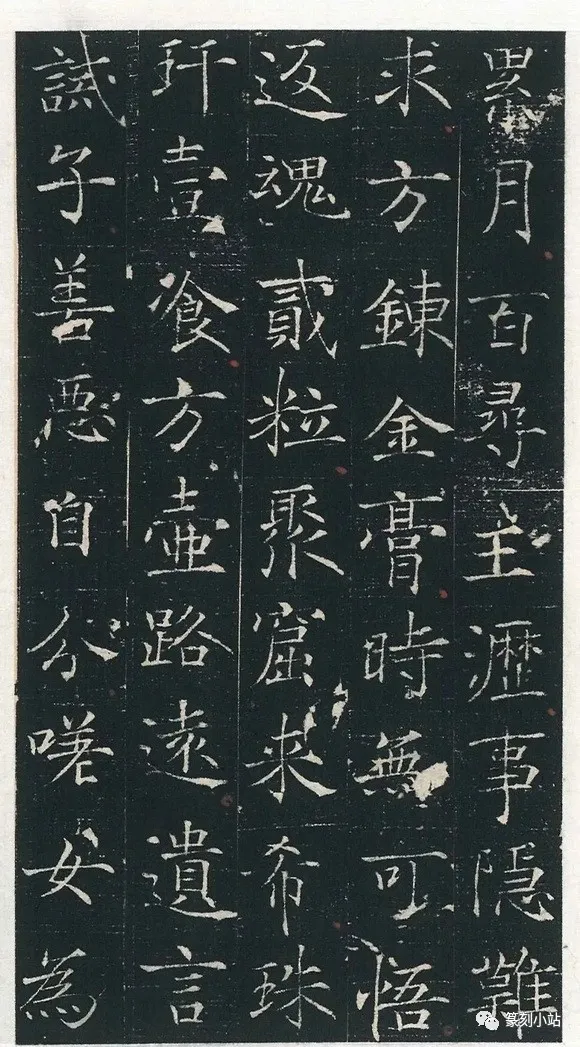 累月百尋主瀝事隱難
求方鍊金膏時無可悟
返魂貳粒聚窟来希珠
玕壹飡方壺路遠遺言
誡子善惡自分嗟女為
篆刻小站